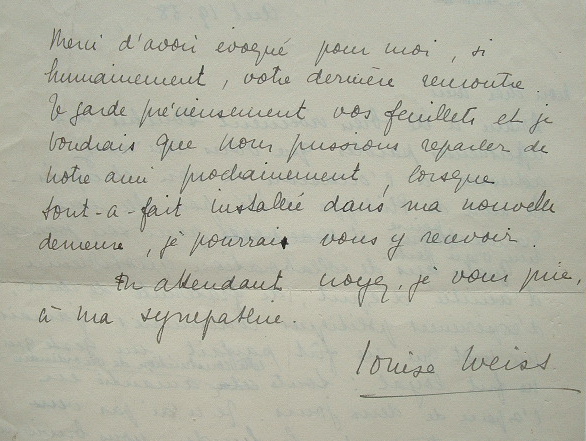 Merci d'avoir évoqué pour moi, si
humainement, votre dernière rencontre.
Je garde précieusement vos feuillets et je
voudrais que nous puissions reparler de
notre ami prochainement lorsque
tout-a-fait installée dans ma nouvelle
demeure, je pourrais vous y recevoir.
En attendant croyez, je vous prie,
à ma sympathie.
Louise Weiss